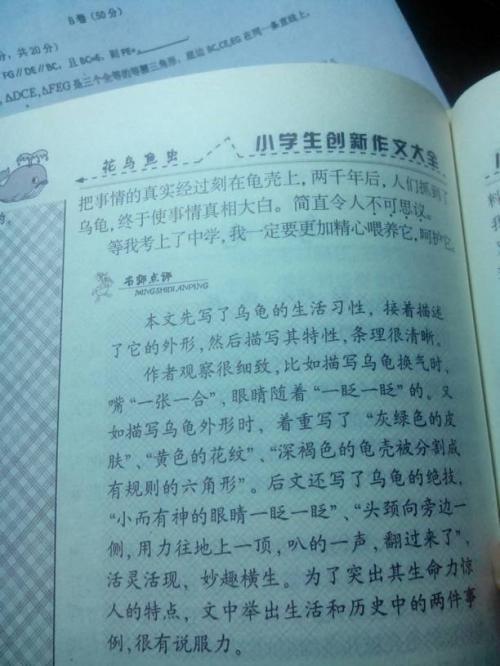 B卷(50分)
分，共20分)
FG∥DE∥BC，且BC=6，则PE=
△DCE,△FEG是三个全等的等腰三角形，底边BC,CE,EG在同一条直线上，
花鸟鱼虫
小学生创新作文大全
把事情的真实经过刻在龟壳上，两千年后，人们抓到了
乌龟，终于使事情真相大白。简直令人不可思议。
等我考上了中学，我一定要更加精心喂养它，呵护它。
名师点评
MINGSHIDIANPING
本文先写了乌龟的生活习性，接着描述
了它的外形，然后描写其特性，条理很清晰。
作者观察很细致，比如描写乌龟换气时，
嘴“一张一合”，眼睛随着“一眨一眨”的。又
如描写乌龟外形时，着重写了“灰绿色的皮
肤”、“黄色的花纹”、“深褐色的龟壳被分割成
有规则的六角形”。后文还写了乌龟的绝技，
“小而有神的眼睛一眨一眨”、“头颈向旁边一
侧，用力往地上一顶，叭的一声，翻过来了”，
活灵活现，妙趣横生。为了突出其生命力惊
人的特点，文中举出生活和历史中的两件事
例，很有说服力。